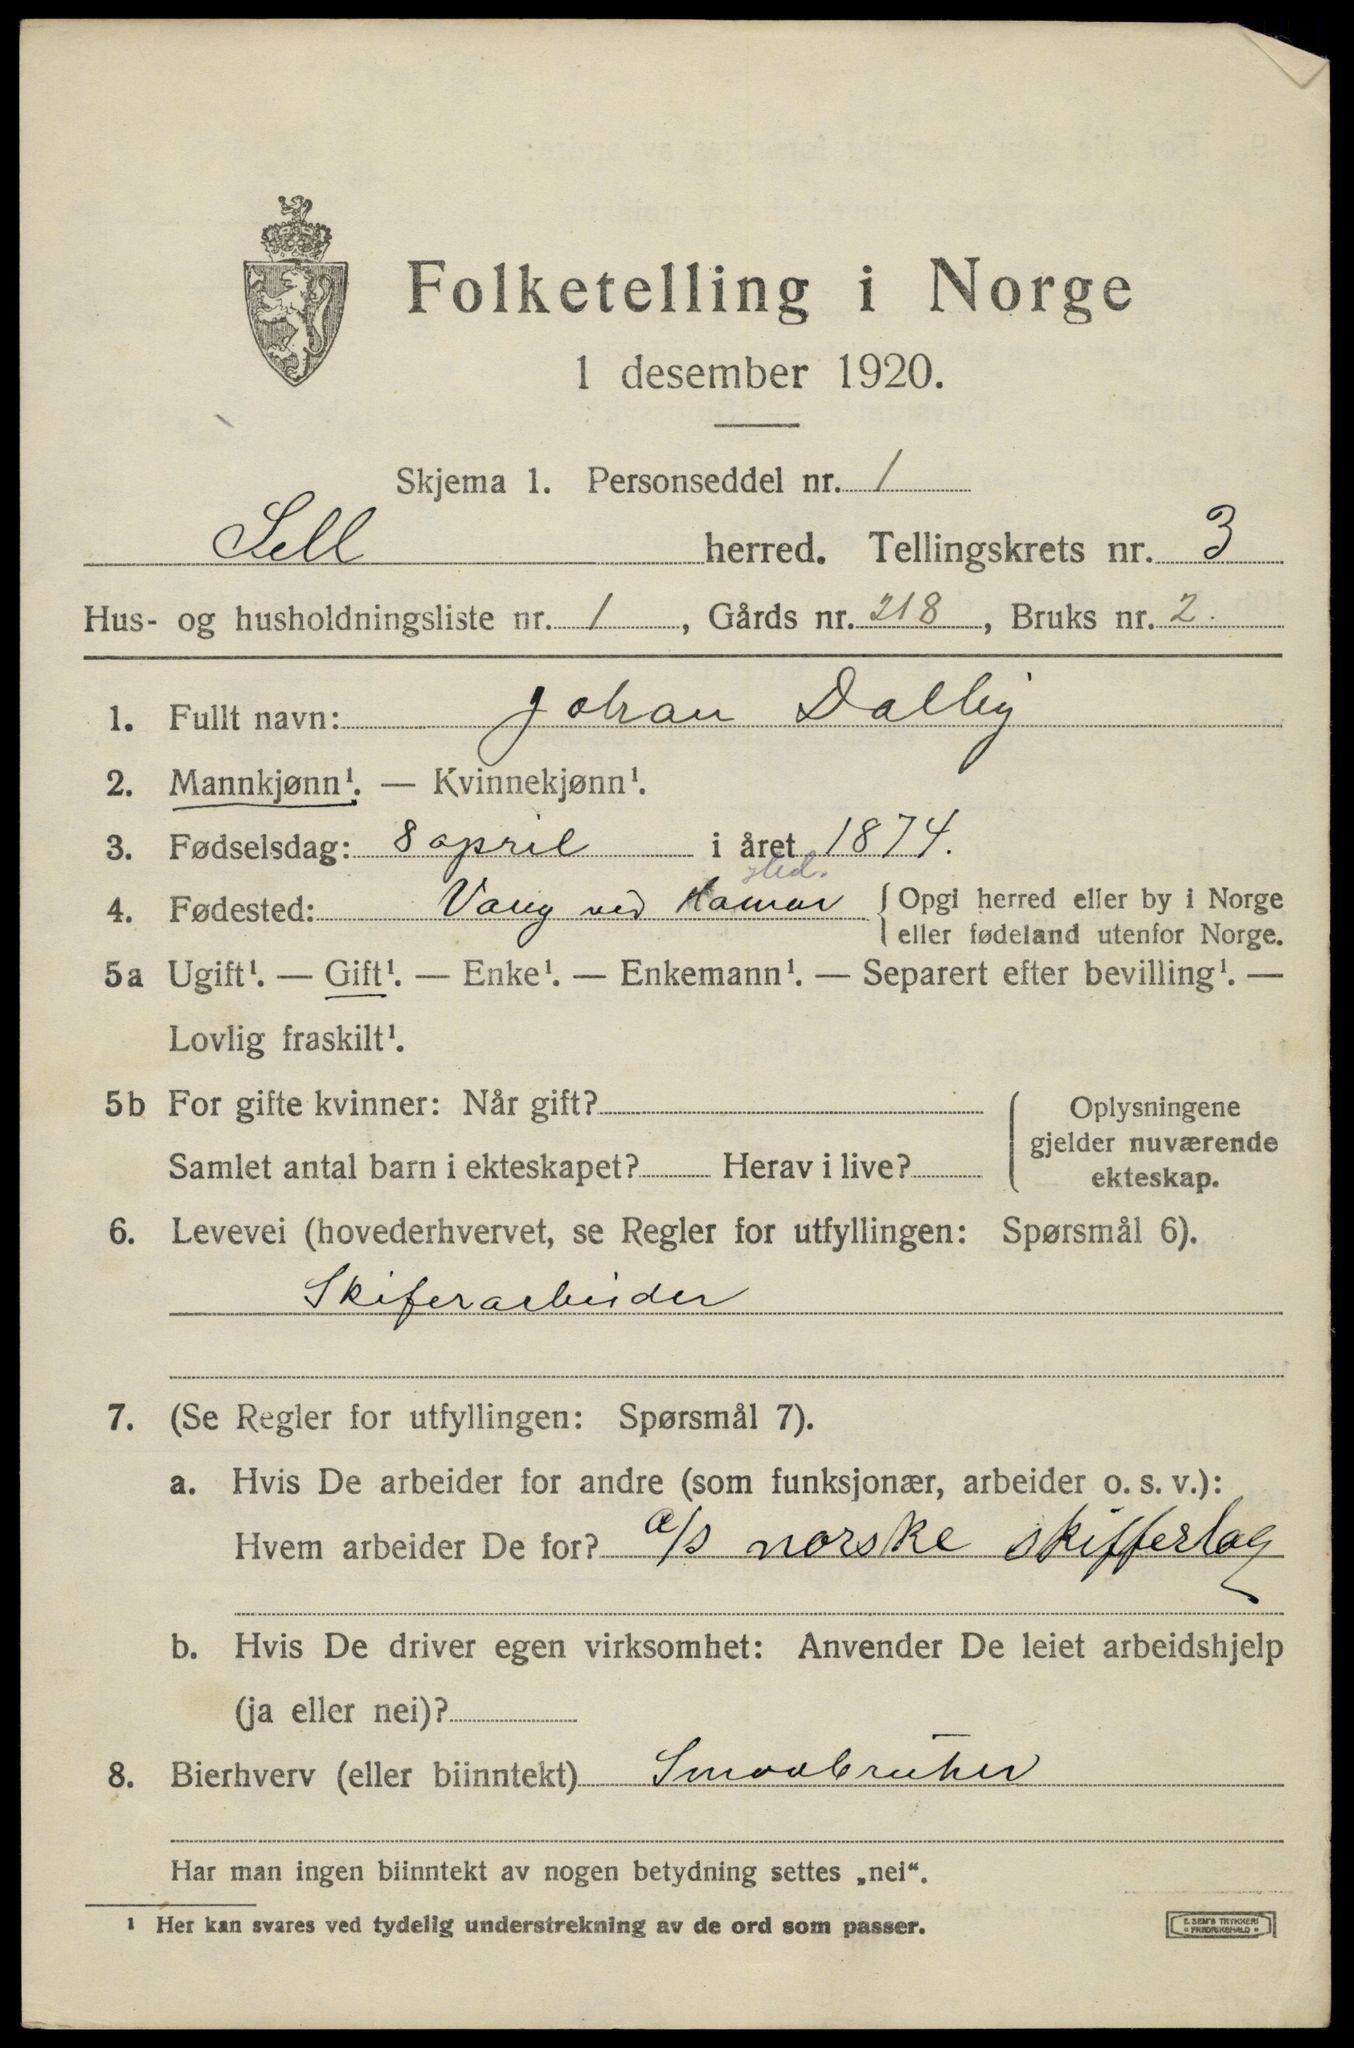 Folketelling i Norge
1 desember 1920.
Skjema 1. Personseddel nr. 1
Sell herred. Tellingskrets nr. 3
Hus- og husholdningsliste nr. 1, Gårds nr. 218, Bruks nr. 2.
1. Fullt navn: Johan Dalby
2. Mannkjønn¹. — Kvinnekjønn¹.
3. Fødselsdag: 8 april i året 1874.
4. Fødested: Vang ved Hamar { Opgi herred eller by i Norge
eller fødeland utenfor Norge.
5a Ugift¹. — Gift¹. — Enke¹. — Enkemann¹. — Separert efter bevilling¹. —
Lovlig fraskilt¹.
5b For gifte kvinner: Når gift? { Oplysningene
gjelder nuværende
Samlet antal barn i ekteskapet? Herav i live?
ekteskap.
6. Levevei (hovederhvervet, se Regler for utfyllingen: Spørsmål 6).
Skiferarbeider
7. (Se Regler for utfyllingen: Spørsmål 7).
a. Hvis De arbeider for andre (som funksjonær, arbeider o. s. v.):
Hvem arbeider De for? a/s norske skifferlag
b. Hvis De driver egen virksomhet: Anvender De leiet arbeidshjelp
(ja eller nei)?
8. Bierhverv (eller biinntekt) Smaabruker
Har man ingen biinntekt av nogen betydning settes „nei“.
¹ Her kan svares ved tydelig understrekning av de ord som passer.
E. SEM'S TRYKKERI
FREDRIKSHALD